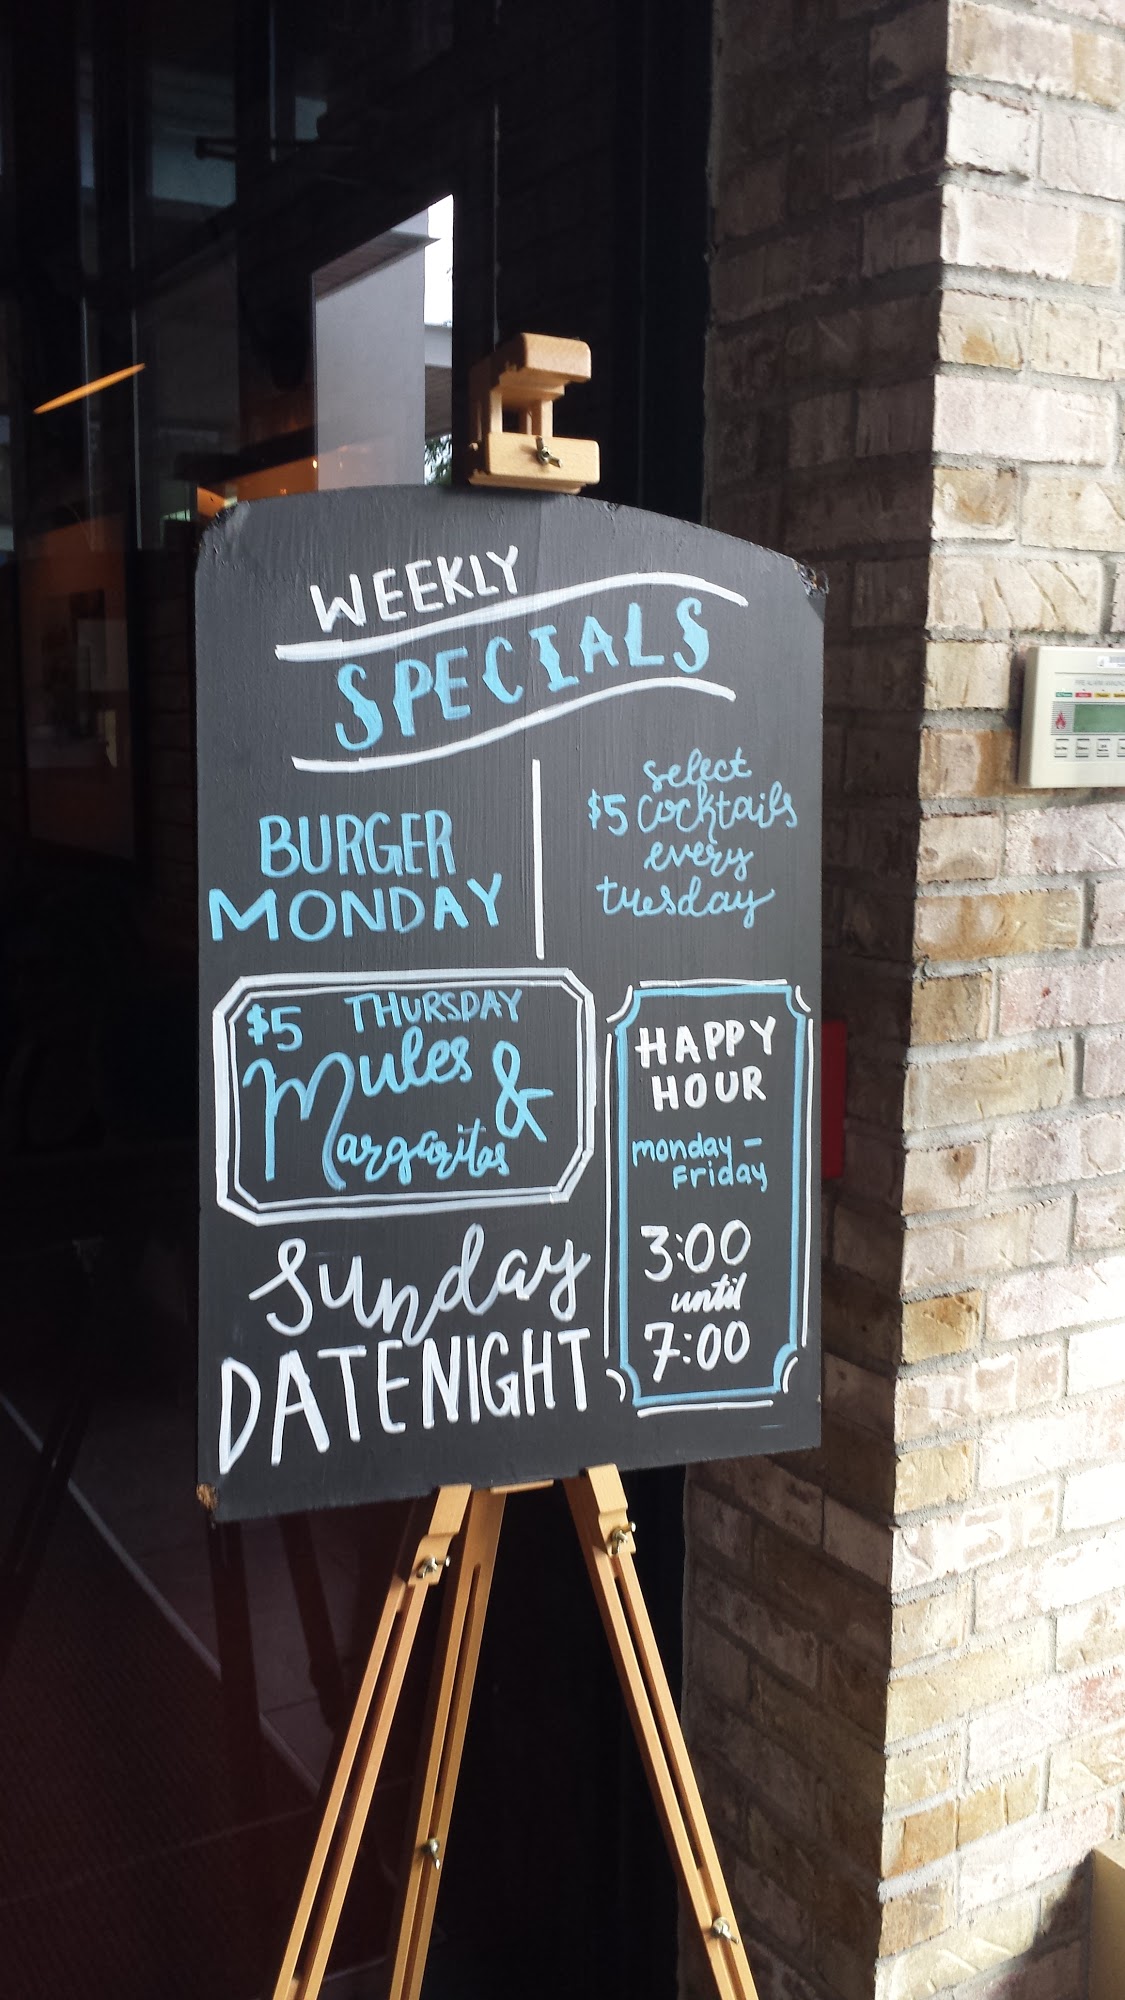 WEEKLY
SPECIALS
BURGER
MONDAY
select
$5 Cocktails
every
tuesday
$5 THURSDAY
Mules &
Margaritas
Sunday
DATENIGHT
HAPPY
HOUR
monday -
Friday
3:00
until
7:00